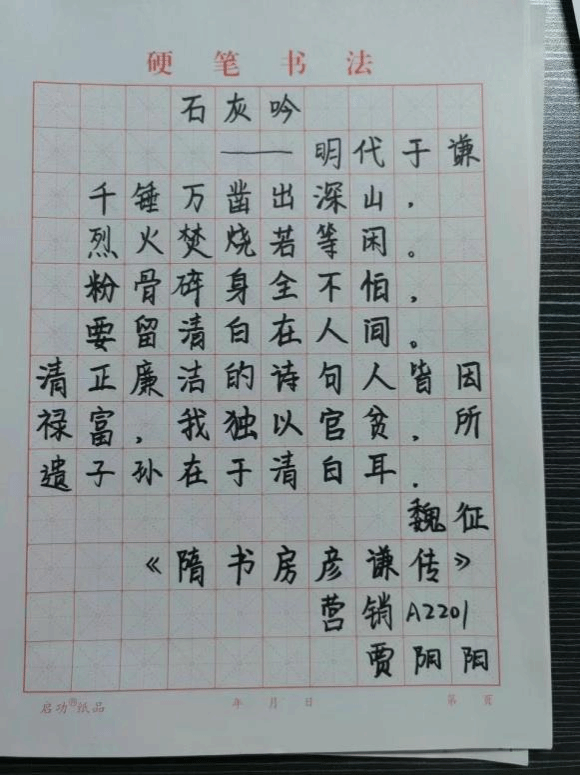 硬笔书法
石灰吟
——明代于谦
千锤万凿出深山，
烈火焚烧若等闲。
粉骨碎身全不怕，
要留清白在人间。
清正廉洁的诗句人皆因
禄富，我独以官贫，所
遗子孙在于清白耳．
魏征
《隋书房彦谦传》
营销A2201
贾阴阳
启功®纸品 年 月 日 第 页